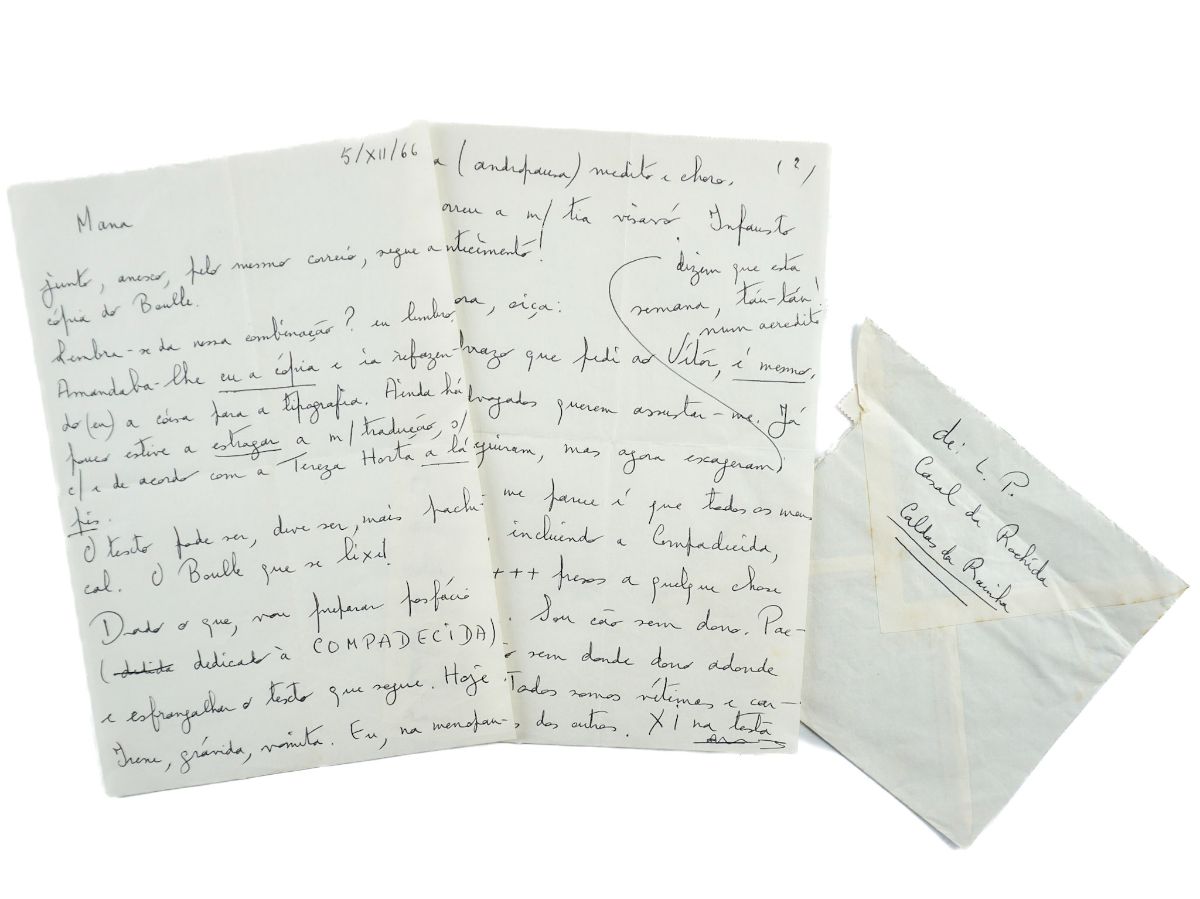 5/XII/66
Mana
junto, anexo, pelo mesmo correio, segue a
cópia do Boulle.
Lembra-se da nossa combinação? eu lembro.
Amandaba-lhe eu a cópia e ia refazen-
do (eu) a coisa para a tipografia. Ainda há
pouco estive a estragar a m/ tradução, s/
c/ e de acordo com a Tereza Horta a lá-
pis.
O texto pode ser, deve ser, mais pachi-
cal. O Boulle que se lixe!
Dado o que, vou preparar posfácio
( dedicado à COMPADECIDA)
e esfrangalhar o texto que segue. Hoje
Irene, grávida, vomita. Eu, na menopau-
(2)
a (andropausa) medito e choro.
orreu a m/ tia visavó. Infausto
ntecimento!
dizem que esta
semana, táu-táu!
num acredito
ora, oiça:
razo que pedi ao Vítor, é mesmo.
vogados querem assustar-me. Já
guiram, mas agora exageram
me parece é que todos os meus
incluindo a Compadecida,
+++ presos a quelque chose
. Sou cão sem dono. Pae-
o sem donde dono adonde
Todos somos vítimas e car-
s dos outros. XI na testa
de: L. P.
Casal da Rochida
Caldas da Rainha